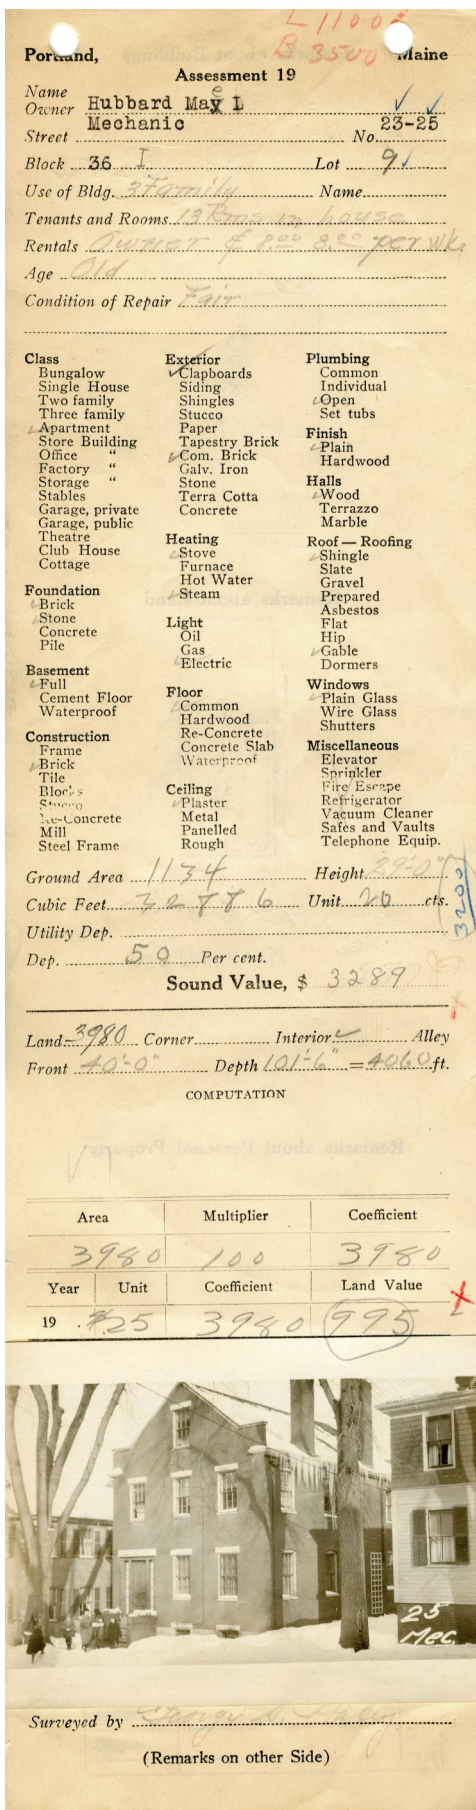 L 1100
B 3500
Portland, Maine
Assessment 19
Name
Owner Hubbard Mae L
Street Mechanic No. 23-25
Block 36 I Lot 9
Use of Bldg. 3 Family Name
Tenants and Rooms 13 Rms in house
Rentals Owner & 8.00 8.00 per wk.
Age Old
Condition of Repair Fair
Class
Bungalow
Single House
Two family
Three family
Apartment
Store Building
Office "
Factory "
Storage "
Stables
Garage, private
Garage, public
Theatre
Club House
Cottage
Foundation
Brick
Stone
Concrete
Pile
Basement
Full
Cement Floor
Waterproof
Construction
Frame
Brick
Tile
Blocks
Stucco
Re-Concrete
Mill
Steel Frame
Exterior
Clapboards
Siding
Shingles
Stucco
Paper
Tapestry Brick
Com. Brick
Galv. Iron
Stone
Terra Cotta
Concrete
Heating
Stove
Furnace
Hot Water
Steam
Light
Oil
Gas
Electric
Floor
Common
Hardwood
Re-Concrete
Concrete Slab
Waterproof
Ceiling
Plaster
Metal
Panelled
Rough
Plumbing
Common
Individual
Open
Set tubs
Finish
Plain
Hardwood
Halls
Wood
Terrazzo
Marble
Roof — Roofing
Shingle
Slate
Gravel
Prepared
Asbestos
Flat
Hip
Gable
Dormers
Windows
Plain Glass
Wire Glass
Shutters
Miscellaneous
Elevator
Sprinkler
Fire Escape
Refrigerator
Vacuum Cleaner
Safes and Vaults
Telephone Equip.
Ground Area 1134 Height 29'-0"
Cubic Feet 32886 Unit 20 cts.
3200
Utility Dep.
Dep. 50 Per cent.
Sound Value, $ 3289
Land 3980 Corner Interior ✓ Alley
Front 40'-0" Depth 101'-6" = 4060 ft.
COMPUTATION
Area Multiplier Coefficient
3980 100 3980
Year Unit Coefficient Land Value
19 .25 3980 995
25
Mec.
Surveyed by George S.
(Remarks on other Side)